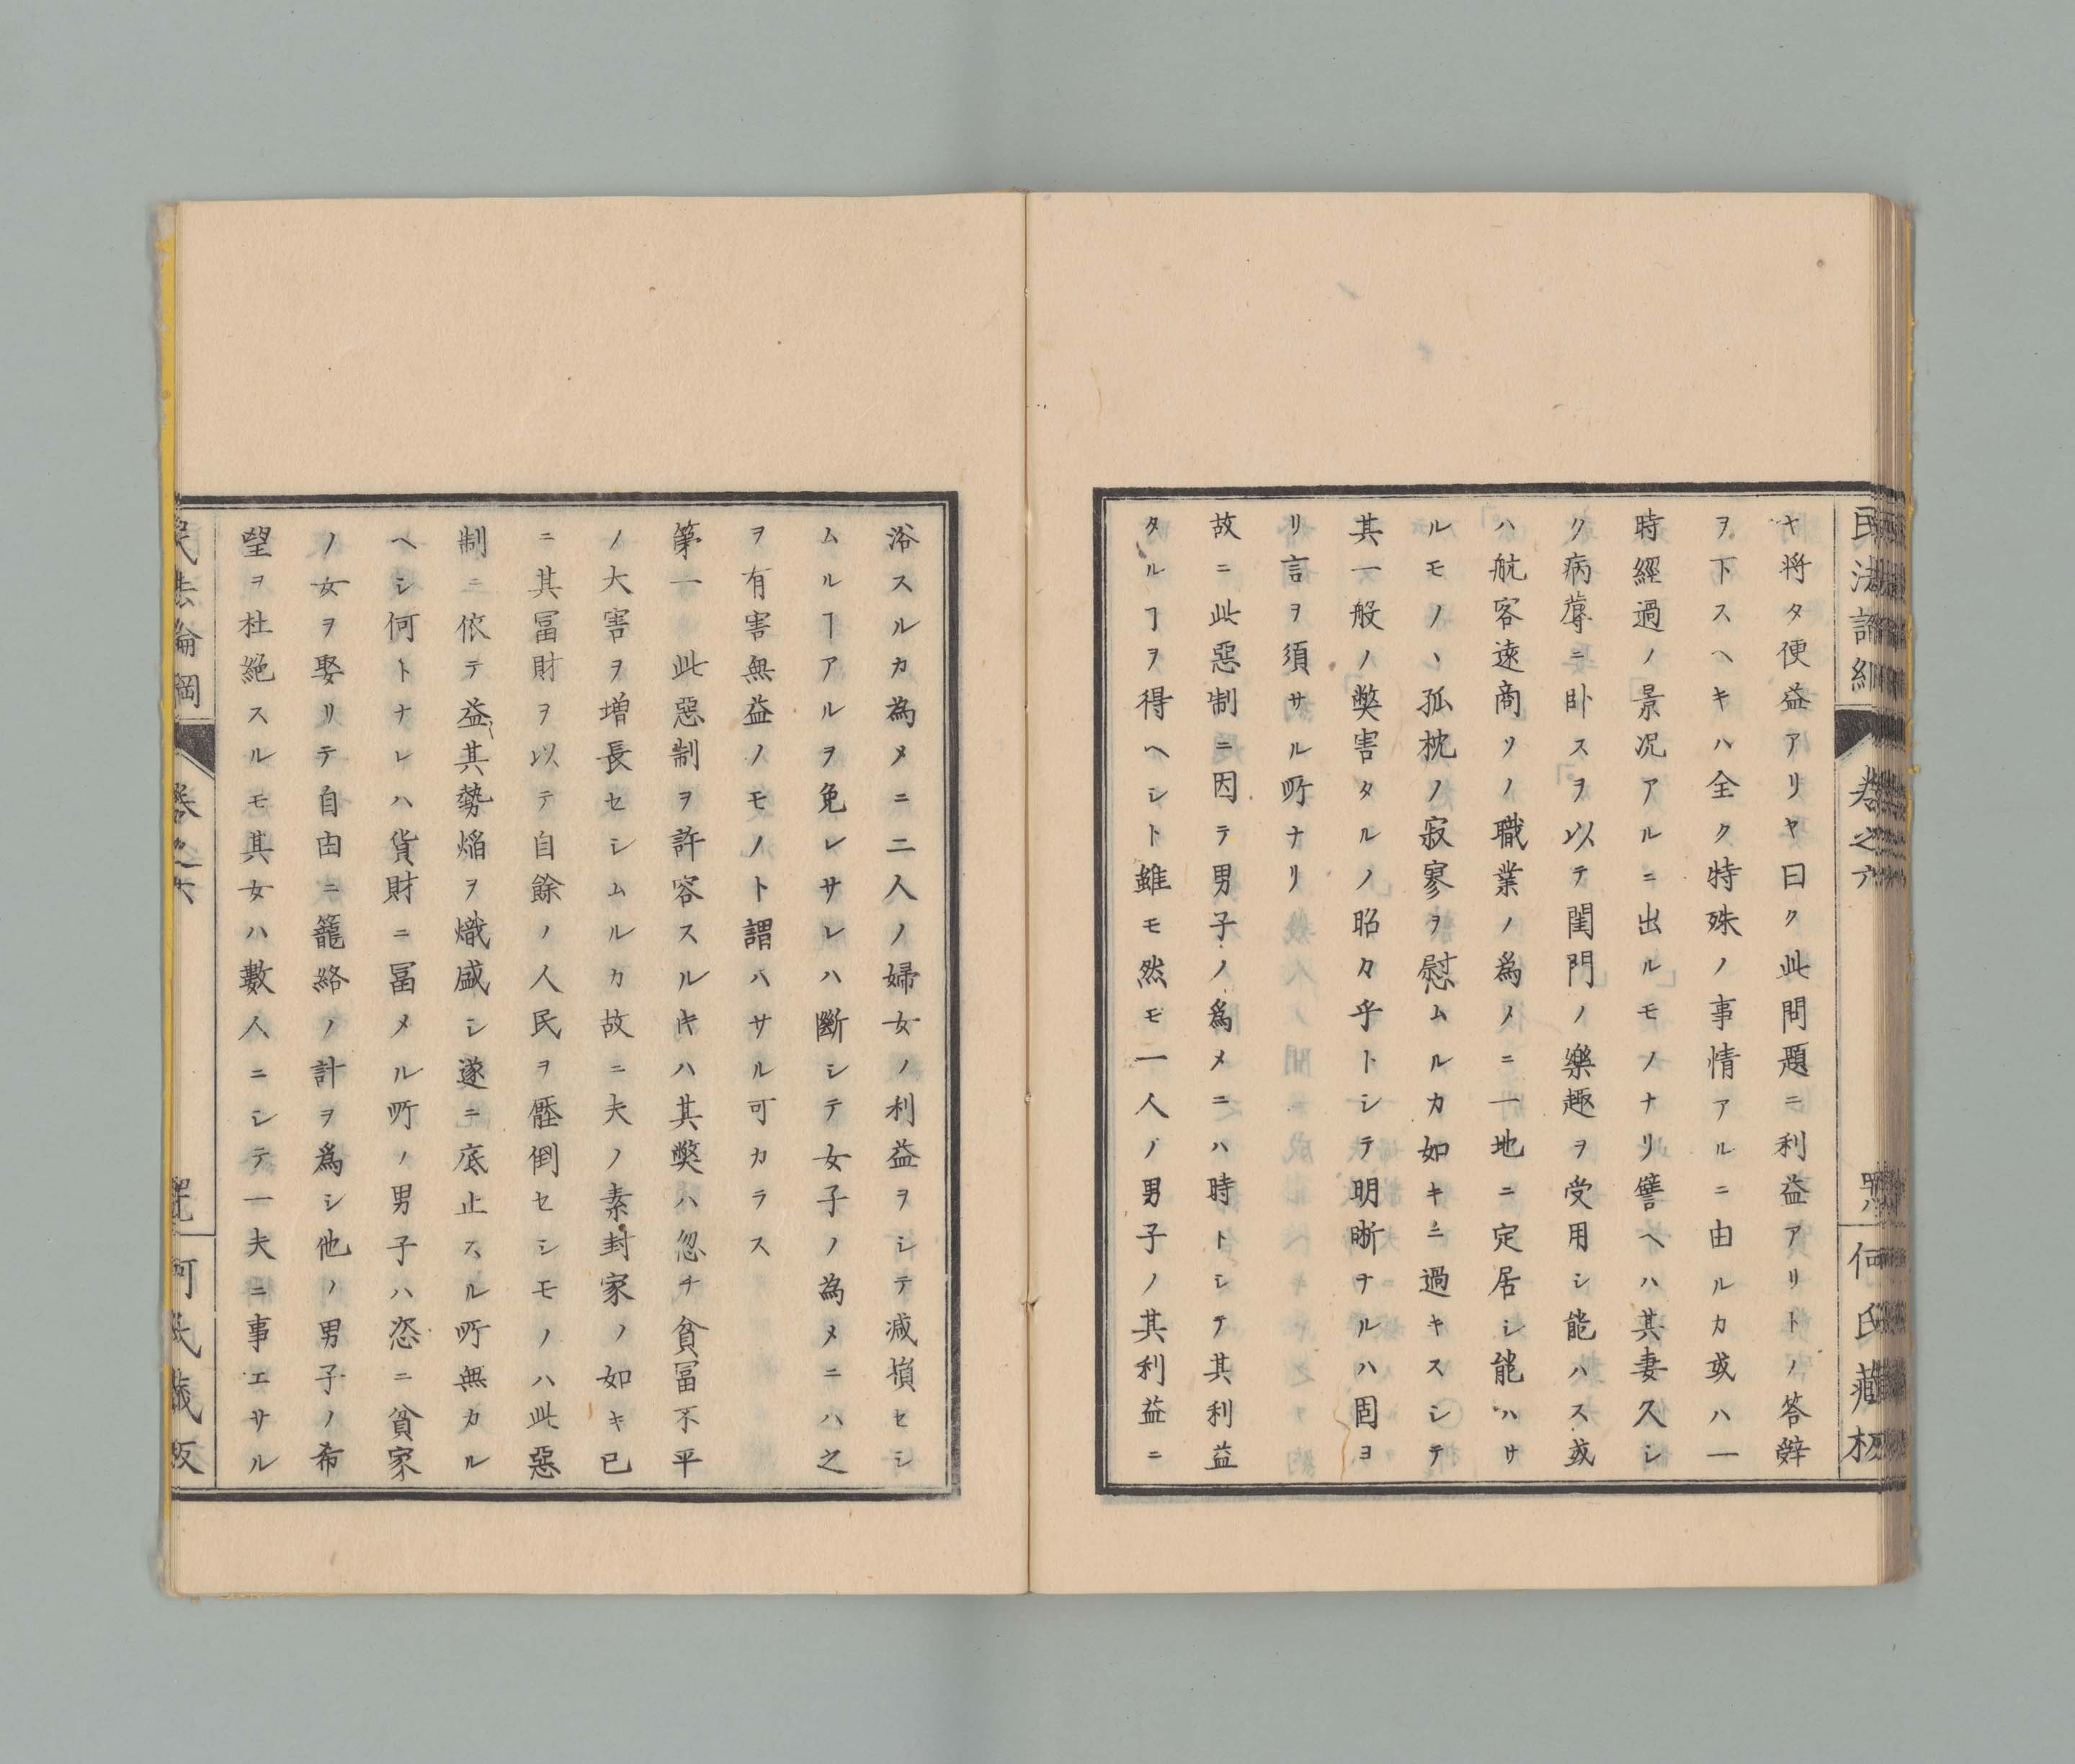 民法論綱 卷之六 何氏藏板
ヤ将タ便益アリヤ曰ク此問題ニ利益アリトノ答辭
ヲ下スヘキハ全ク特殊ノ事情アルニ由ルカ或ハ一
時經過ノ景況アルニ出ルモノナリ譬ヘハ其妻久シ
ク病蓐ニ卧スヲ以テ閨門ノ樂趣ヲ受用シ能ハス或
ハ航客遠商ソノ職業ノ爲メニ一地ニ定居シ能ハサ
ルモノヽ孤枕ノ寂寥ヲ慰ムルカ如キニ過キスシテ
其一般ノ獘害タルノ昭々乎トシテ明晰ナルハ固ヨ
リ言ヲ須サル所ナリ
故ニ此惡制ニ因テ男子ノ爲メニハ時トシテ其利益
タルヿヲ得ヘシト雖モ然モ一人ノ男子ノ其利益ニ
浴スルカ為メニ二人ノ婦女ノ利益ヲシテ减損セシ
ムルヿアルヲ免レサレハ斷シテ女子ノ為メニハ之
ヲ有害無益ノモノト謂ハサル可カラス
第一 此惡制ヲ許容スルキハ其獘ハ忽チ貧冨不平
ノ大害ヲ増長セシムルカ故ニ夫ノ素封家ノ如キ已
ニ其冨財ヲ以テ自餘ノ人民ヲ壓倒セシモノハ此惡
制ニ依テ益其勢焔ヲ熾盛シ遂ニ底止スル所無カル
ヘシ何トナレハ貨財ニ冨メル所ノ男子ハ恣ニ貧家
ノ女ヲ娶リテ自由ニ籠絡ノ計ヲ爲シ他ノ男子ノ希
望ヲ杜絶スルモ其女ハ數人ニシテ一夫ニ事エサル
民法論綱 卷之六 何氏藏板